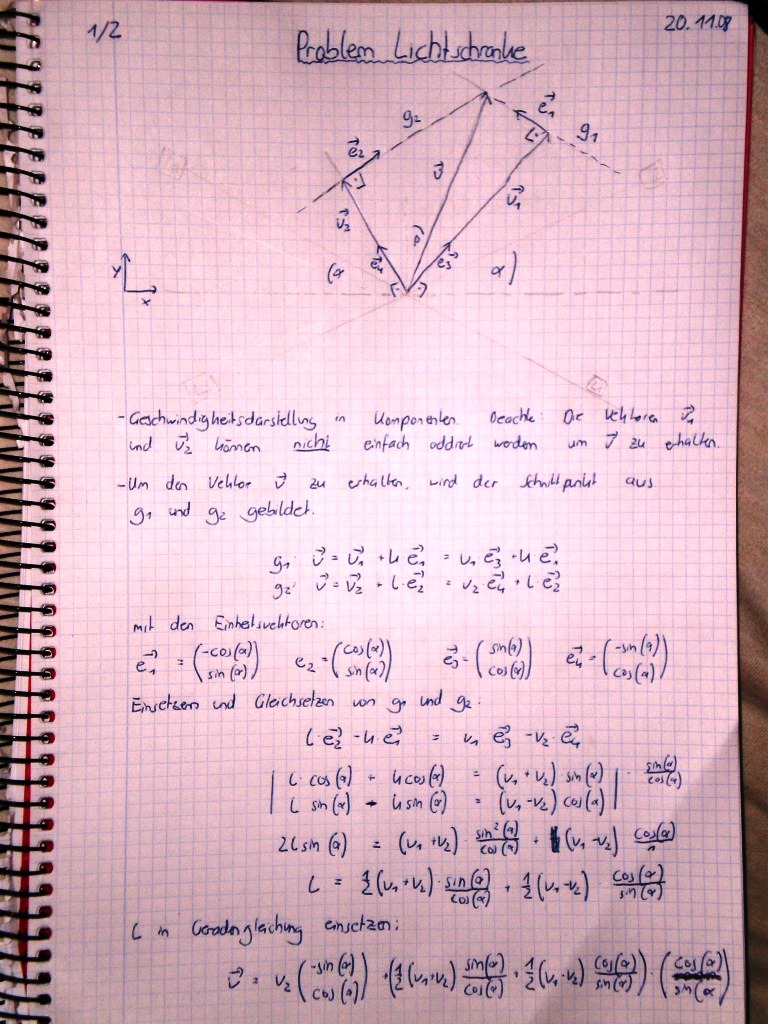 1/2
20.11.08
Problem Lichtschranke
g₂
e₁⃗
g₁
e₂⃗
v⃗
v₁⃗
v₂⃗
(α
e₄⃗
e₃⃗
α)
y
x
- Geschwindigkeitsdarstellung in Komponenten. Beachte: Die Vektoren v₁⃗
und v₂⃗ können nicht einfach addiert werden um v⃗ zu erhalten.
- Um den Vektor v⃗ zu erhalten, wird der Schnittpunkt aus
g₁ und g₂ gebildet.
g₁: v⃗ = v₁⃗ + k·e₁⃗ = v₁·e₃⃗ + k·e₁⃗
g₂: v⃗ = v₂⃗ + l·e₂⃗ = v₂·e₄⃗ + l·e₂⃗
mit den Einheitsvektoren:
e₁⃗ = (-cos(α) sin(α)) e₂ = (cos(α) sin(α)) e₃⃗ = (sin(α) cos(α)) e₄⃗ = (-sin(α) cos(α))
Einsetzen und Gleichsetzen von g₁ und g₂:
l·e₂⃗ - k·e₁⃗ = v₁ e₃⃗ - v₂·e₄⃗
| l·cos(α) + k cos(α) = (v₁ + v₂) sin(α) | · sin(α)/cos(α)
| l sin(α) - k sin(α) = (v₁ - v₂) cos(α) |
2l sin(α) = (v₁ + v₂) · sin²(α)/cos(α) + (v₁ - v₂) cos(α)/1
l = 1/2 (v₁ + v₂) · sin(α)/cos(α) + 1/2 (v₁ - v₂) · cos(α)/sin(α)
l in Geradengleichung einsetzen:
v⃗ = v₂ (-sin(α) cos(α)) + (1/2 (v₁ + v₂) sin(α)/cos(α) + 1/2 (v₁ - v₂) cos(α)/sin(α)) · (cos(α) sin(α)